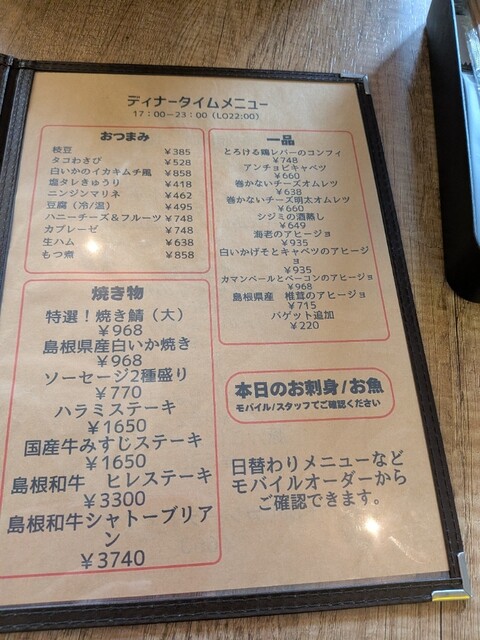 ディナータイムメニュー
17:00−23:00(LO22:00)
おつまみ
枝豆 ¥385
タコわさび ¥528
白いかのイカキムチ風 ¥858
塩タレきゅうり ¥418
ニンジンマリネ ¥462
豆腐(冷/温) ¥495
ハニーチーズ＆フルーツ ¥748
カプレーゼ ¥748
生ハム ¥638
もつ煮 ¥858
焼き物
特選！焼き鯖(大)
¥968
島根県産白いか焼き
¥968
ソーセージ2種盛り
¥770
ハラミステーキ
¥1650
国産牛みすじステーキ
¥1650
島根和牛 ヒレステーキ
¥3300
島根和牛シャトーブリア
ン
¥3740
一品
とろける鶏レバーのコンフィ
¥748
アンチョビキャベツ
¥660
巻かないチーズオムレツ
¥638
巻かないチーズ明太オムレツ
¥660
シジミの酒蒸し
¥649
海老のアヒージョ
¥935
白いかげそとキャベツのアヒージ
ョ
¥935
カマンベールとベーコンのアヒージョ
¥968
島根県産 椎茸のアヒージョ
¥715
バゲット追加
¥220
本日のお刺身/お魚
モバイル/スタッフてご確認ください
日替わりメニューなど
モバイルオーダーから
ご確認できます。